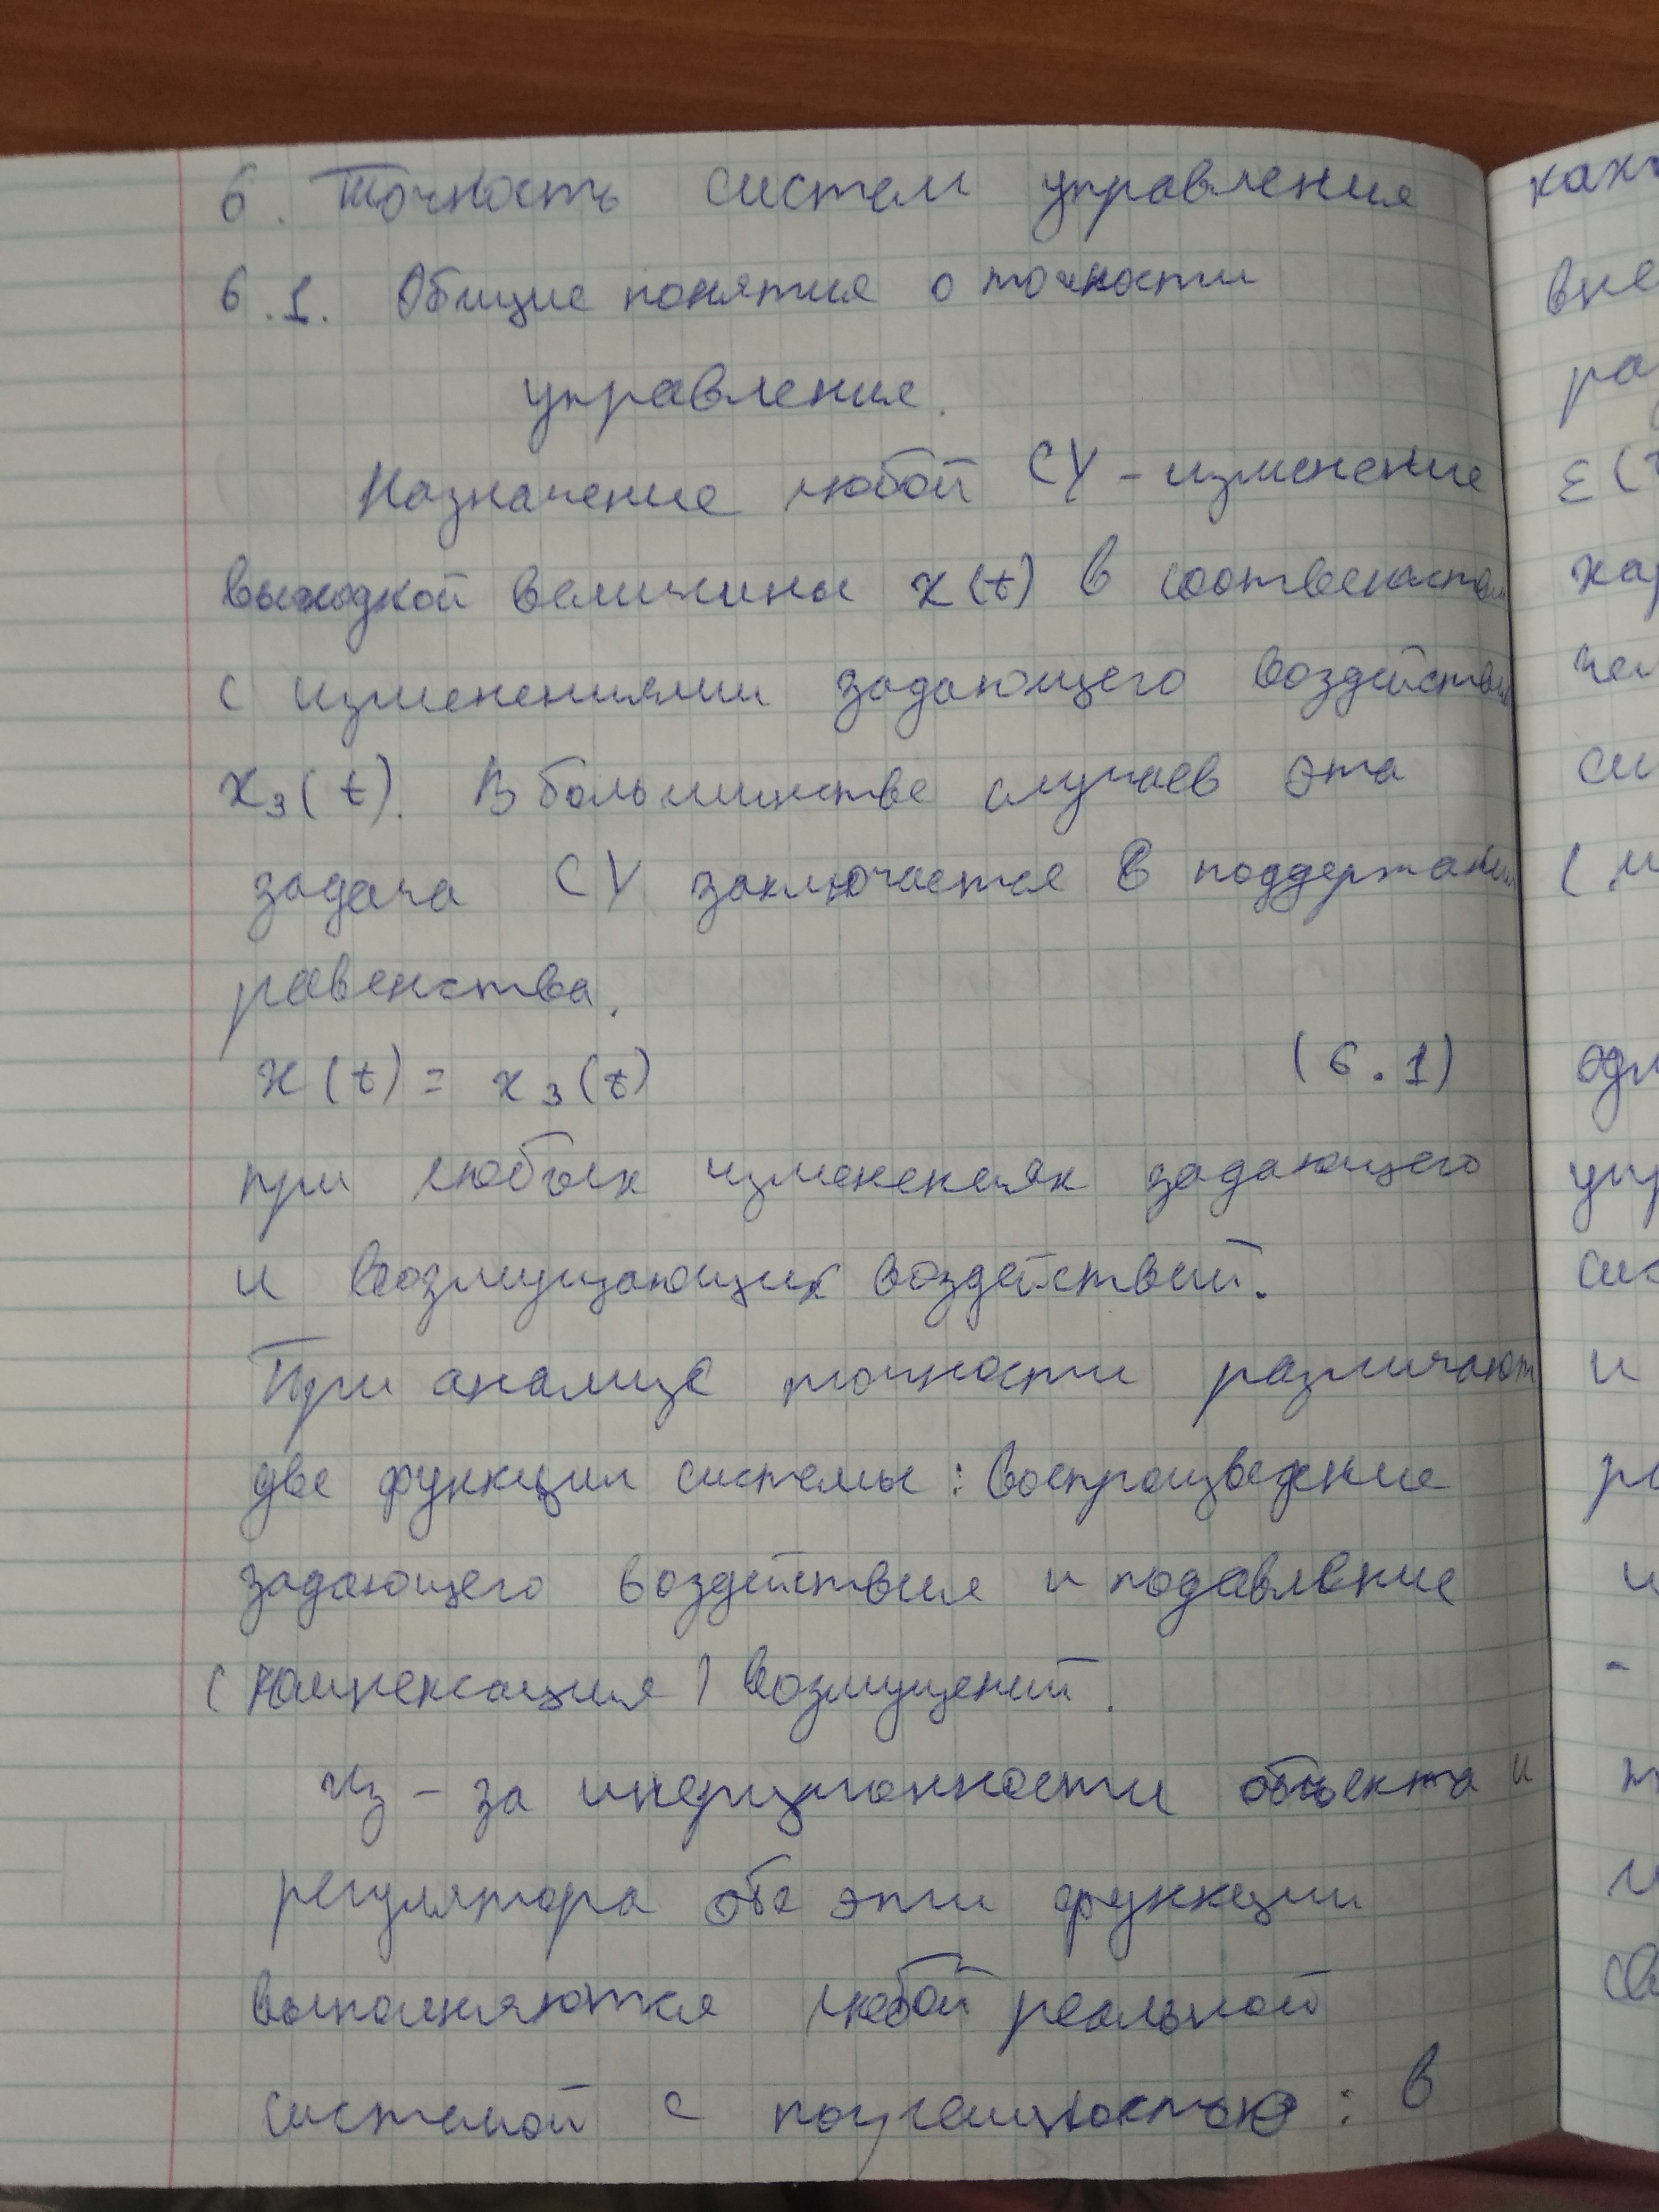 6. Точность систем управления
6.1. Общие понятия о точности
управления.
Назначение любой СУ - изменение
выходной величины x(t) в соответствии
с изменениями задающего воздействия
x₃(t). В большинстве случаев эта
задача СУ заключается в поддержании
равенства.
x(t) = x₃(t) (6.1)
при любых изменениях задающего
и возмущающих воздействий.
При анализе точности различают
две функции системы: воспроизведение
задающего воздействия и подавление
(компенсация) возмущений.
Из-за инерционности объекта и
регулятора обе эти функции
выполняются любой реальной
системой с погрешностью: в